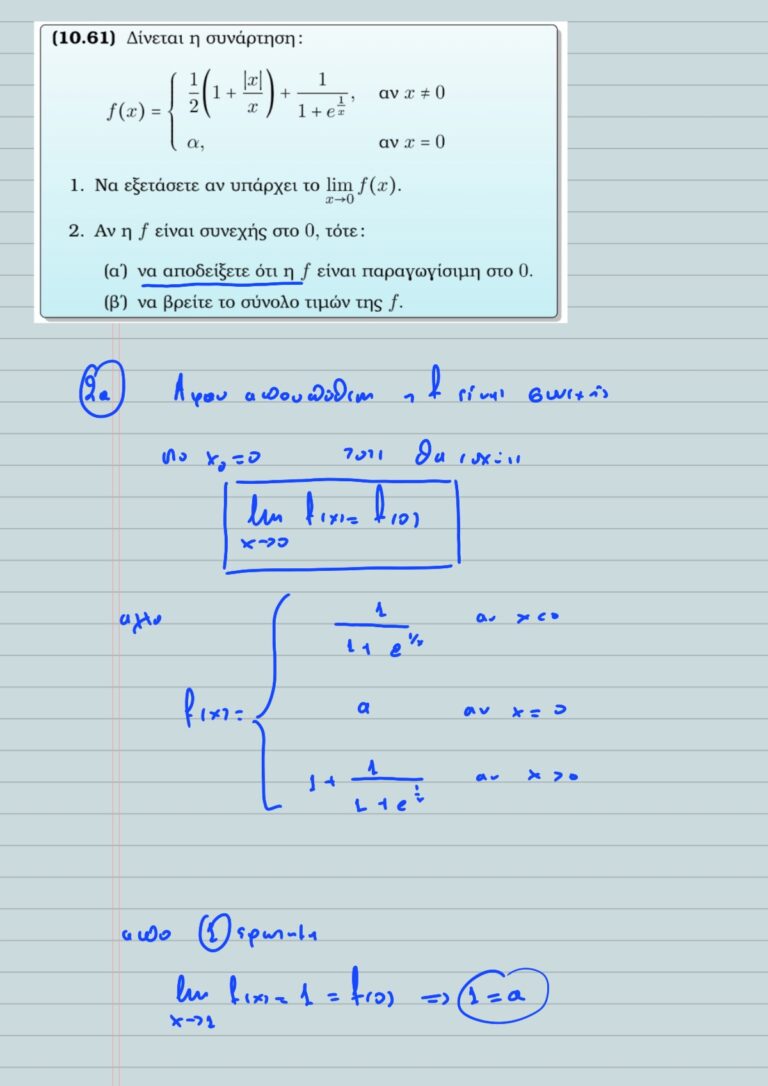 (10.61) Δίνεται η συνάρτηση:
f(x) = { 1/2 (1 + |x|/x) + 1/(1 + e^{1/x}), αν x ≠ 0
α, αν x = 0
1. Να εξετάσετε αν υπάρχει το lim_{x→0} f(x).
2. Αν η f είναι συνεχής στο 0, τότε:
(α΄) να αποδείξετε ότι η f είναι παραγωγίσιμη στο 0.
(β΄) να βρείτε το σύνολο τιμών της f.
2α Αφου απο υποθεση η f ειναι συνεχης
στο x₀=0 τοτε θα ισχυει
lim_{x→0} f(x) = f(0)
αλλα
1/(1 + e^{1/x}) αν x<0
f(x) = { α αν x = 0
1 + 1/(1 + e^{1/x}) αν x>0
απο (1) ερωτημα
lim_{x→1} f(x) = 1 = f(0) => 1 = α